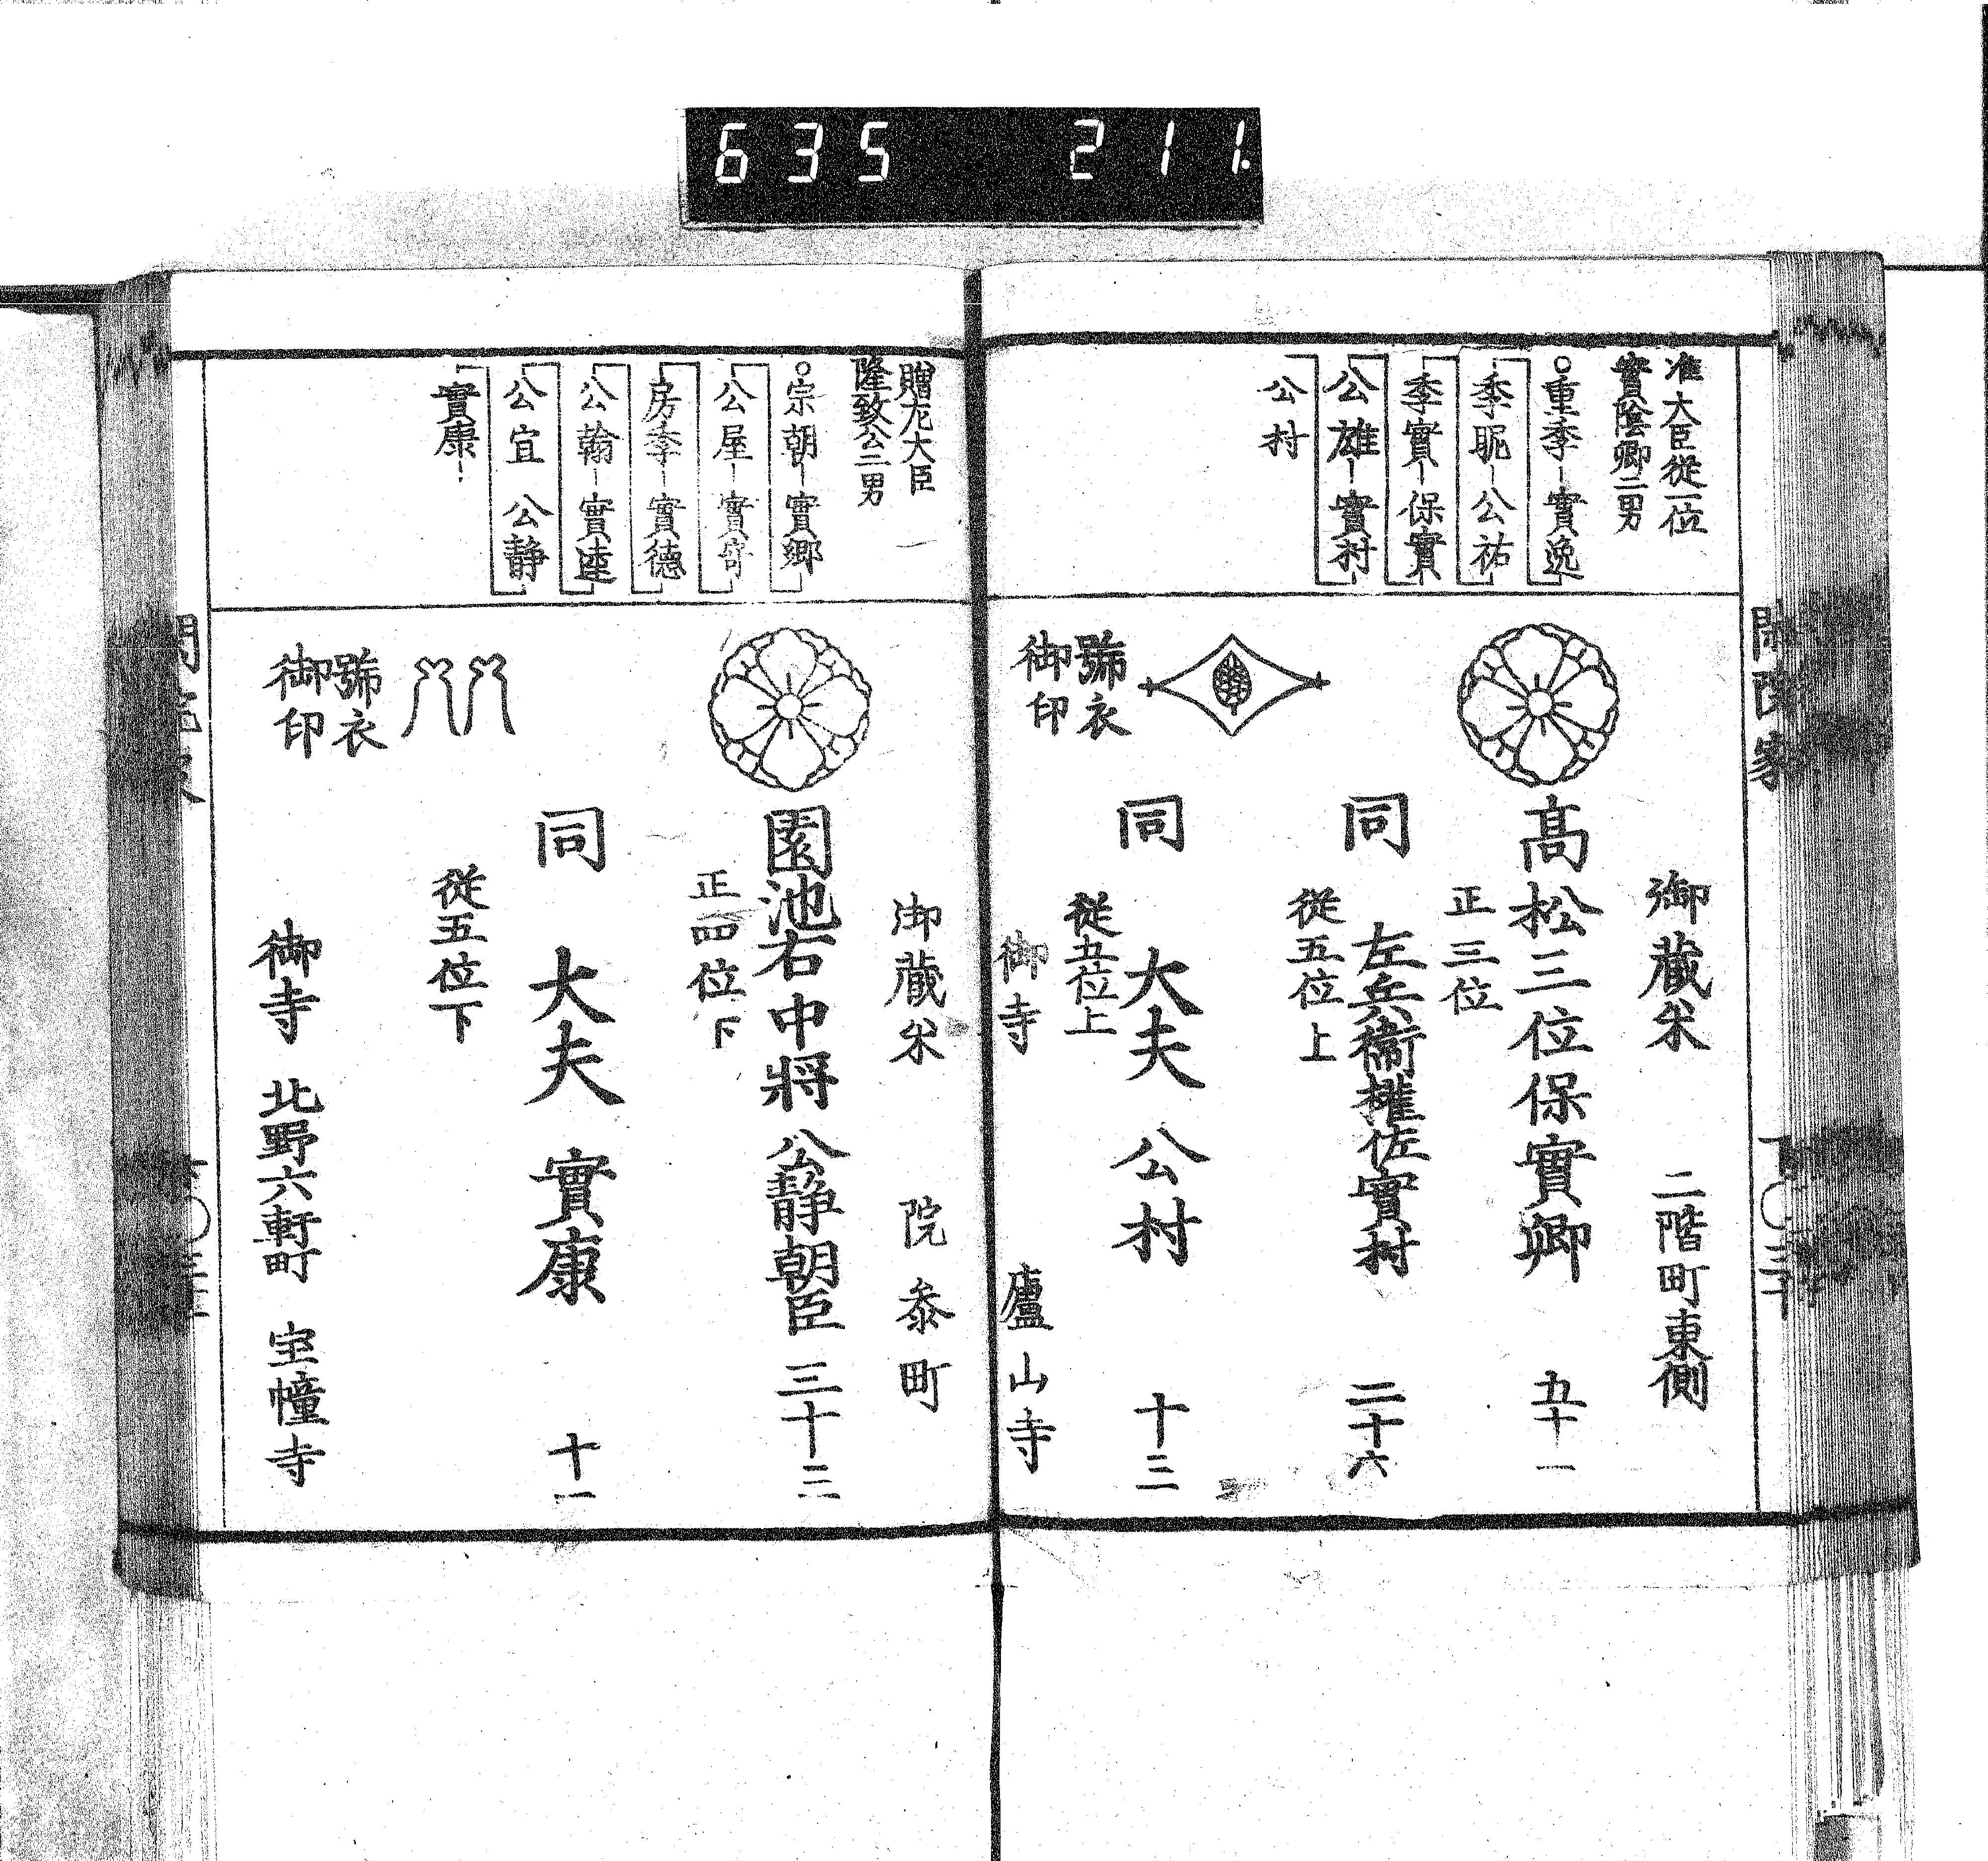 635 211.
准大臣從一位
實陰卿二男
○重季―實逸
季昵―公祐
季實―保實
公雄―實村
公村
御蔵米 二階町東側
髙松三位保實卿 五十一
正三位
同 左兵衞權佐實村 二十六
從五位上
同 大夫 公村 十三
從五位上
號衣
御印
御寺 廬山寺
贈左大臣
隆致公二男
○宗朝―實郷
公屋―實守
房季―實德
公翰―實達
公宜 公静
實康
御蔵米 院参町
園池右中將 公靜朝臣 三十三
正四位下
同 大夫 實康 十一
從五位下
號衣
御印
御寺 北野六軒町 宝幢寺